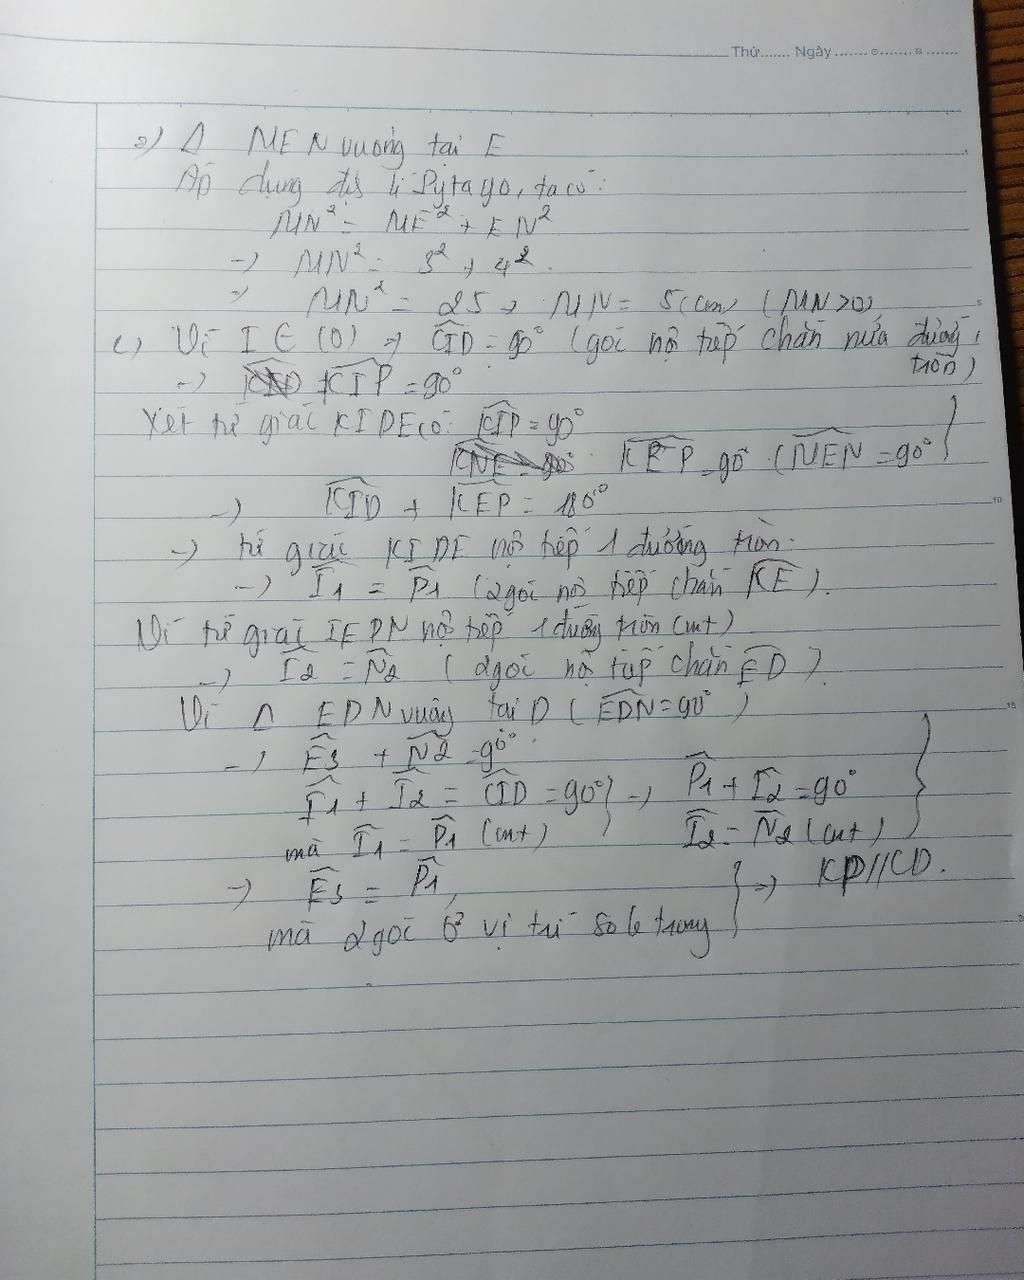 Thứ....... Ngày ....... o ....... s .......
2) Δ MEN vuông tại E
Áp dụng đ/s lí Pytago, ta có:
MN² = ME² + EN²
-) MN² = 3² + 4².
=) MN² = 25 → MN = 5 (cm) (MN>0)
c) Vì I ∈ (O) => CID = 90° (góc nộ tiếp chắn nửa đường
tròn)
-) KIP = 90°
Xét tứ giác KIDE có: KIP = 90°
KEP = 90° (MEN = 90°
-) KID + KEP = 180°
-) tứ giác KIDE nộ tiếp 1 đường tròn.
-) I1 = P1 (2 góc nộ tiếp chắn KE).
Vì tứ giác IEDN nộ tiếp 1 đường tròn (cmt)
-) I2 = N2 (2 góc nộ tiếp chắn ED).
Vì Δ EDN vuông tại D (EDN = 90°)
-) E3 + N2 = 90°.
I1 + I2 = CID = 90° } -) P1 + I2 = 90°
mà I1 = P1 (cmt) I2 = N2 (cmt)
-) E3 = P1, } => KD//CD.
mà 2 góc ở vị trí so le trong